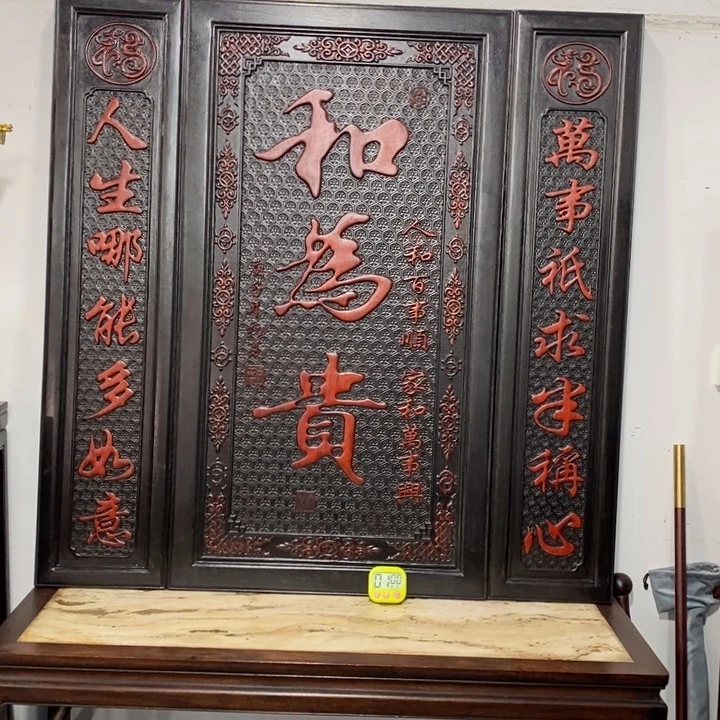 福
人生哪能多如意
和為貴
人和百事順 家和萬事興
福
萬事祇求半稱心
0100